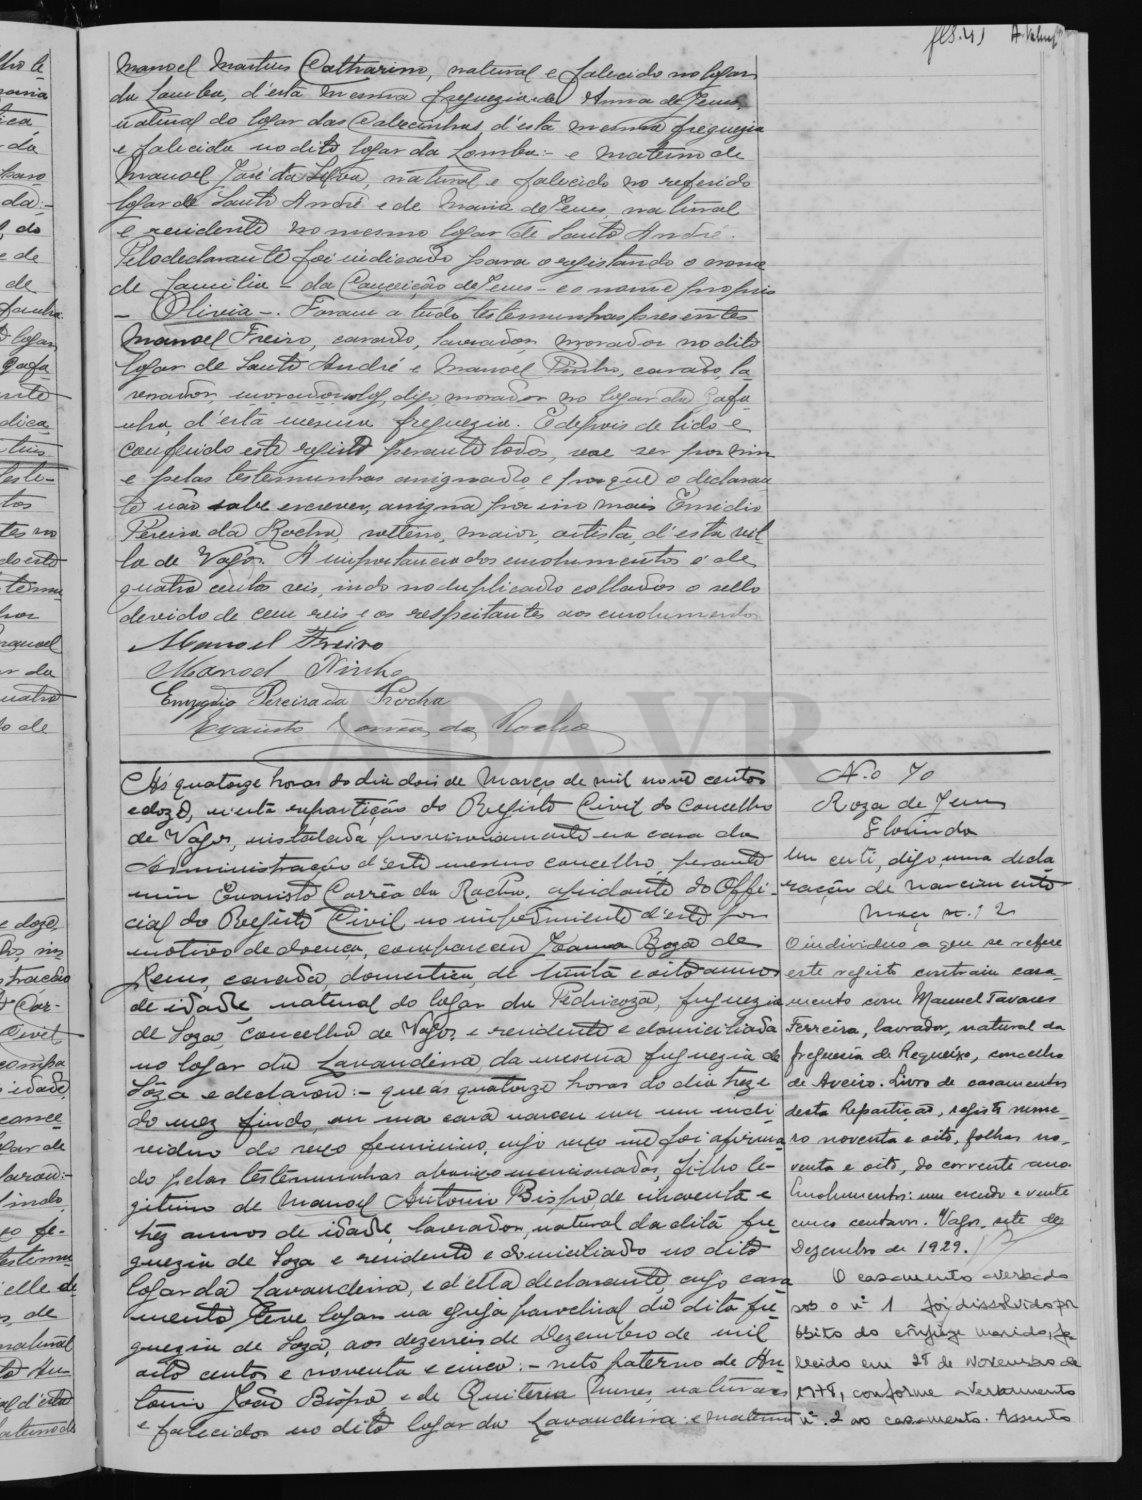 fls. 41
Manoel Martins Catharino, natural e falecido no logar
da Lomba, d'esta mesma freguezia e de Anna de Jesus,
natural do logar das Calecinhas, d'esta mesma freguezia
e falecida no dito logar da Lomba:- e materno de
Manoel José da Silva, natural e falecido no referido
logar de Santo André e de Maria de Jesus, natural
e residente no mesmo logar de Santo André.
Pelo declarante foi indicado para o registando o nome
de familia - da Conceição de Jesus - e o nome proprio
- Olivia -. Foram a tudo testemunhas presentes
Manoel Freiro, casado, lavrador, morador no dito
logar de Santo André e Manoel Ninho, casado, la-
vrador, morador no log, digo morador no logar da Gafa-
nha, d'esta mesma freguezia. E depois de lido e
conferido este registo perante todos, vae ser por mim
e pelas testemunhas assignado e porque o declaran
te não sabe escrever, assigna por ino mais Emidio
Pereira da Rocha, solteiro, maior, artista, d'esta vil-
la de Vagos. A importancia dos emolumentos é de
quatro centos reis, indo no duplicado collados o sello
devido de cem reis e os respeitantes aos emolumentos
Manoel Freiro
Manoel Ninho
Emygdio Pereira da Rocha
Evaristo Corrêa da Rocha
Ás quatorze horas do dia dois de Março de mil nove centos
e doze, n'esta repartição do Registo Civil do concelho
de Vagos, installada provisoriamente na casa da
Administração d'este mesmo concelho, perante
mim Evaristo Corrêa da Rocha, ajudante do Offi-
cial do Registo Civil no impedimento d'este por
motivo de doença, compareceu Joanna Roza de
Jesus, casada, domestica, de trinta e oito annos
de idade, natural do logar da Pedricoza, freguezia
de Soza, concelho de Vagos, e residente e domiciliada
no logar da Lavandeira da mesma freguezia de
Sóza e declarou:- que ás quatorze horas do dia treze
do mez findo, em sua casa nasceu um um indi
viduo do sexo feminino, cujo sexo me foi afirma
do pelas testemunhas abaixo mencionadas, filho le-
gitimo de Manoel Antonio Bispo, de cincoenta e
trez annos de idade, lavrador, natural da dita fre-
guezia de Soza e residente e domiciliado no dito
logar da Lavandeira, e d'ella declarante, cujo casa
mento teve logar na egreja parochial da dita fre
guezia de Soza, aos dezeseis de Dezembro de mil
oito centos e noventa e cinco:- neto paterno de An-
tonio João Bispo, e de Quiteria Nunes, naturaes
e falecidos no dito logar da Lavandeira: e materno
N.o 70
Roza de Jesus
Florinda
Um certi, digo, uma decla
ração de nascimento
Março 2-12
O individuo a que se refere
este registo contraiu casa-
mento com Manuel Tavares
Ferreira, lavrador, natural da
freguesia de Requeixo, concelho
de Aveiro. Livro de casamentos
desta Repartição, registo nume-
ro noventa e oito, folhas no-
venta e oito, do corrente ano.
Emolumentos: um escudo e vinte
cinco centavos. Vagos, sete de
Dezembro de 1929.
O casamento averbado
sob o nº 1 foi dissolvido por
óbito do cônjuge marido, fa
lecido em 28 de Novembro de
1978, conforme averbamento
nº. 2 ao casamento. Assento
ADAVR